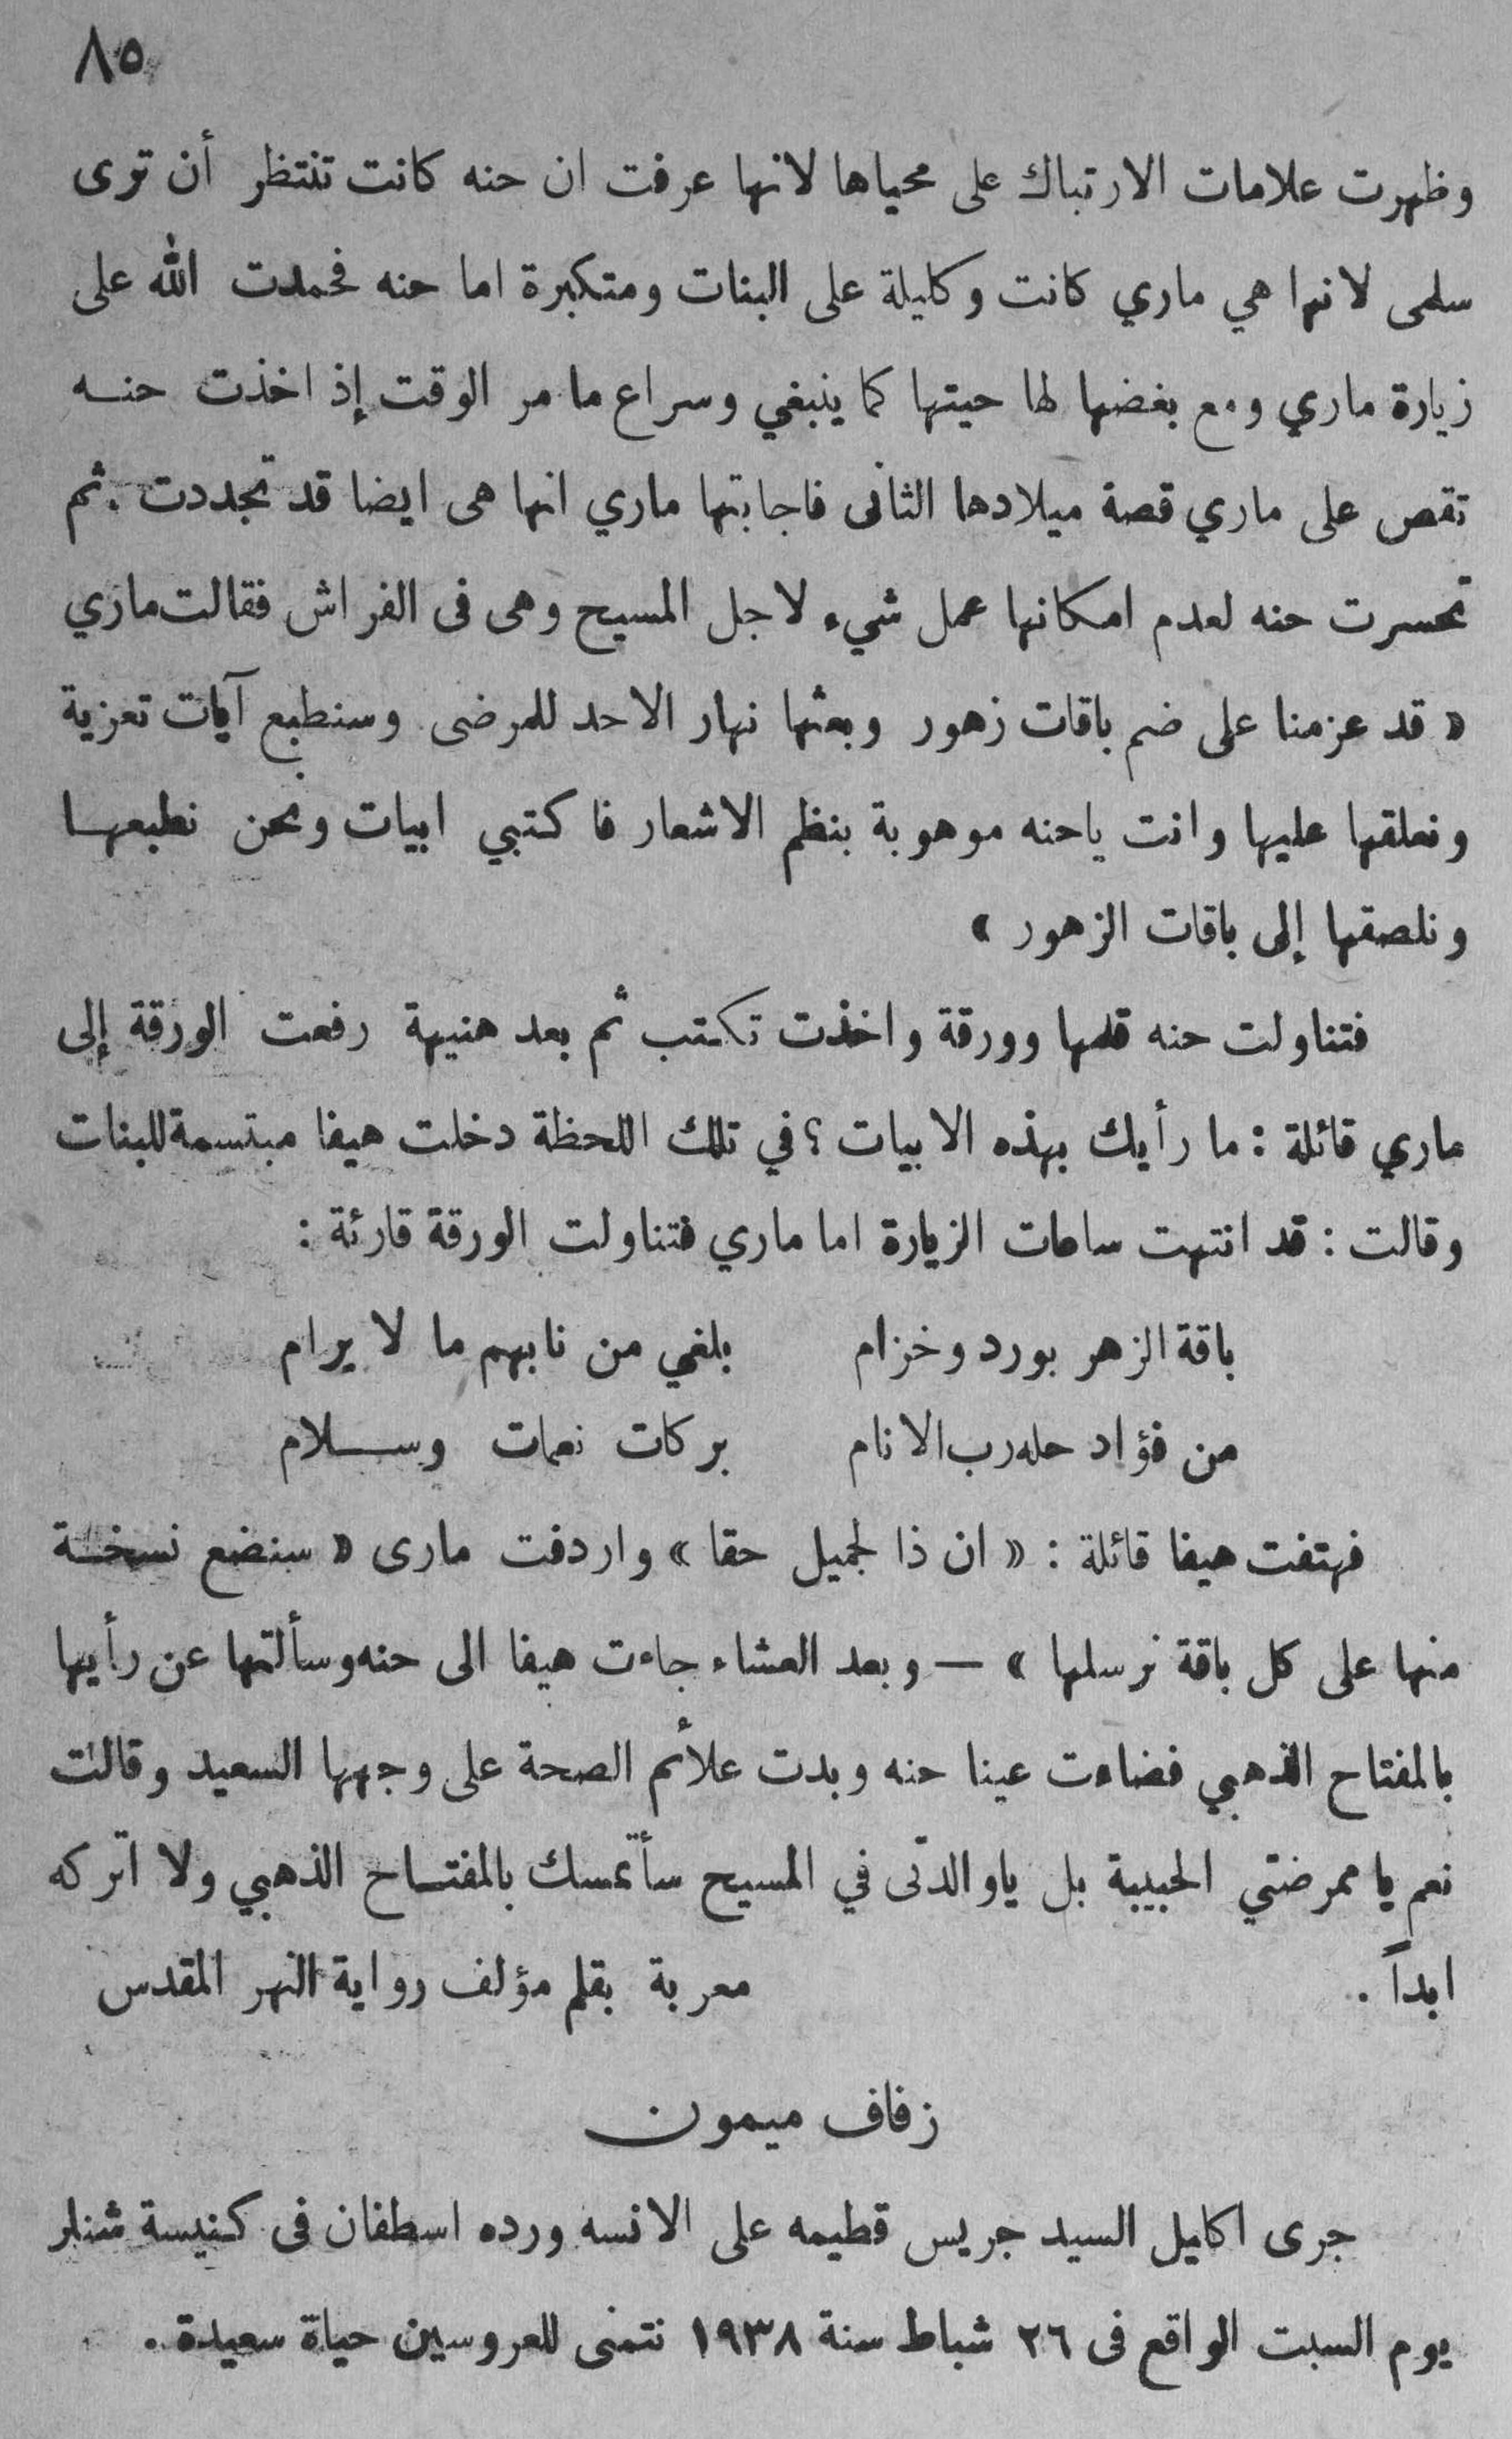 ٨٥
وظهرت علامات الارتباك على محياها لانها عرفت ان حنه كانت تنتظر أن ترى
سلمى لانها هي ماري كانت وكليلة على البنات ومتكبرة اما حنه فحمدت الله على
زيارة ماري ومع بغضها لها حيتها كما ينبغي وسراع ما مر الوقت إذ اخذت حنـه
تقص على ماري قصة ميلادها الثانى فاجابتها ماري انها هى ايضا قد تجددت. ثم
تحسرت حنه لعدم امكانها عمل شيء لاجل المسيح وهى فى الفراش فقالت ماري
« قد عزمنا على ضم باقات زهور وبعثها نهار الاحد للمرضى وسنطبع آيات تعزية
ونعلقها عليها وانت ياحنه موهوبة بنظم الاشعار فاكتبي ابيات ونحن نطبعهـا
ونلصقها إلى باقات الزهور »
فتناولت حنه قلمها وورقة واخذت تكتب ثم بعد هنيهة رفعت الورقة إلى
ماري قائلة : ما رأيك بهذه الابيات ؟ في تلك اللحظة دخلت هيفا مبتسمة للبنات
وقالت : قد انتهت ساعات الزيارة اما ماري فتناولت الورقة قارئة :
باقة الزهر بورد وخزام بلغي من نابهم ما لا يرام
من فؤاد حله رب الانام بركات نعمات وســلام
فهتفت هيفا قائلة : « ان ذا لجميل حقا » واردفت مارى « سنضع نسخـة
منها على كل باقة نرسلها » — وبعد العشاء جاءت هيفا الى حنه وسألتها عن رأيها
بالمفتاح الذهبي فضاءت عينا حنه وبدت علائم الصحة على وجهها السعيد وقالت
نعم يا ممرضتي الحبيبة بل ياوالدتى في المسيح سأتمسك بالمفتـاح الذهبي ولا اتركه
ابداً . معربة بقلم مؤلف رواية النهر المقدس
زفاف ميمون
جرى اكليل السيد جريس قطيمه على الانسه ورده اسطفان فى كنيسة شنلر
يوم السبت الواقع فى ٢٦ شباط سنة ١٩٣٨ نتمنى للعروسين حياة سعيدة .